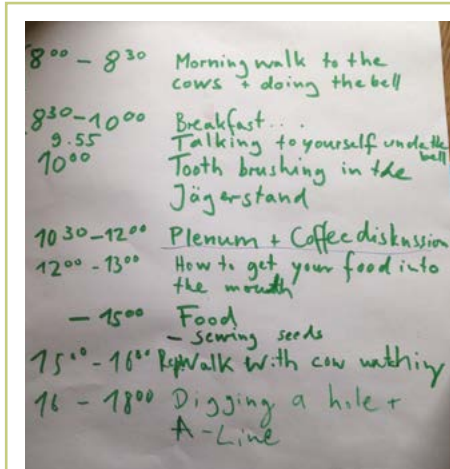 8⁰⁰ – 8³⁰ Morning walk to the
cows + doing the bell
8³⁰–10⁰⁰ Breakfast...
9.55 Talking to yourself unde the bell
10⁰⁰ Tooth brushing in the
Jägerstand
10 30–12⁰⁰ Plenum + Coffeediskussion
12⁰⁰ - 13⁰⁰ How to get your food into
the mouth
– 15⁰⁰ Food
– sewing seeds
15⁰⁰ - 16⁰⁰ Walk with cow
16 – 18⁰⁰ Digging a hole +
A-Line